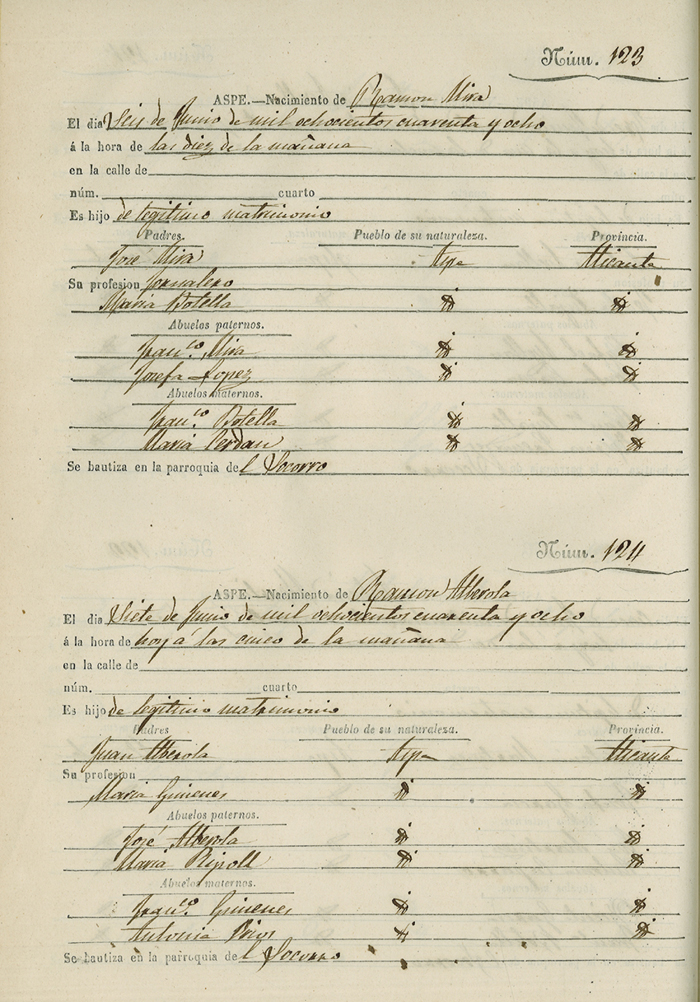 Núm. 123
ASPE.—Nacimiento de Ramon Mira
El dia Seis de Junio de mil ochocientos cuarenta y ocho
á la hora de las diez de la mañana
en la calle de
núm. cuarto
Es hijo de legitimo matrimonio
Padres. Pueblo de su naturaleza. Provincia.
José Mira Aspe Alicante
Su profesion Jornalero
Maria Botella id id
Abuelos paternos.
Franco. Mira id id
Josefa Lopez id id
Abuelos maternos.
Franco. Botella id id
Maria Cerdan id id
Se bautiza en la parroquia del Socorro
Núm. 124
ASPE.—Nacimiento de Ramon Alberola
El dia Siete de Junio de mil ochocientos cuarenta y ocho
á la hora de hoy á las cinco de la mañana
en la calle de
núm. cuarto
Es hijo de legitimo matrimonio
Padres Pueblo de su naturaleza. Provincia.
Juan Alberola Aspe Alicante
Su profesion
Maria Gimenes id id
Abuelos paternos.
José Alberola id id
Maria Ripoll id id
Abuelos maternos.
Franco. Gimenes id id
Antonia id id
Se bautiza en la parroquia del Socorro